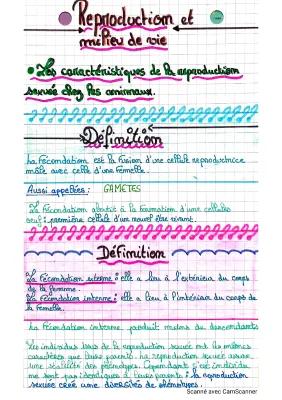 Reproduction et
milieu de vie
• Les caractéristiques de la reproduction
sexuée chez les animaux.
Définition
La Fécondation est la fusion d'une cellule reproductrice
mâle avec celle d'une Femelle.
Aussi appelées : GAMÈTES
La Fécondation aboutit à la formation d'une cellules
œuf : première cellule d'un nouvel être vivant.
Définition
La Fécondation externe : elle a lieu à l'extérieur du corps
de la femme.
La Fécondation interne : elle a lieu à l'intérieur du corps de
la Femelle.
La Fécondation interne produit moins de descendants
Les individus issus de la reproduction sexuée ont les mêmes
caractères que leurs parents. La reproduction sexuée assure
une stabilité des phénotypes. Cependant
ne sont pas identiques à leurs parents : la reproduction
sexuée crée une diversités de phénotypes.
Scanné avec CamScanner